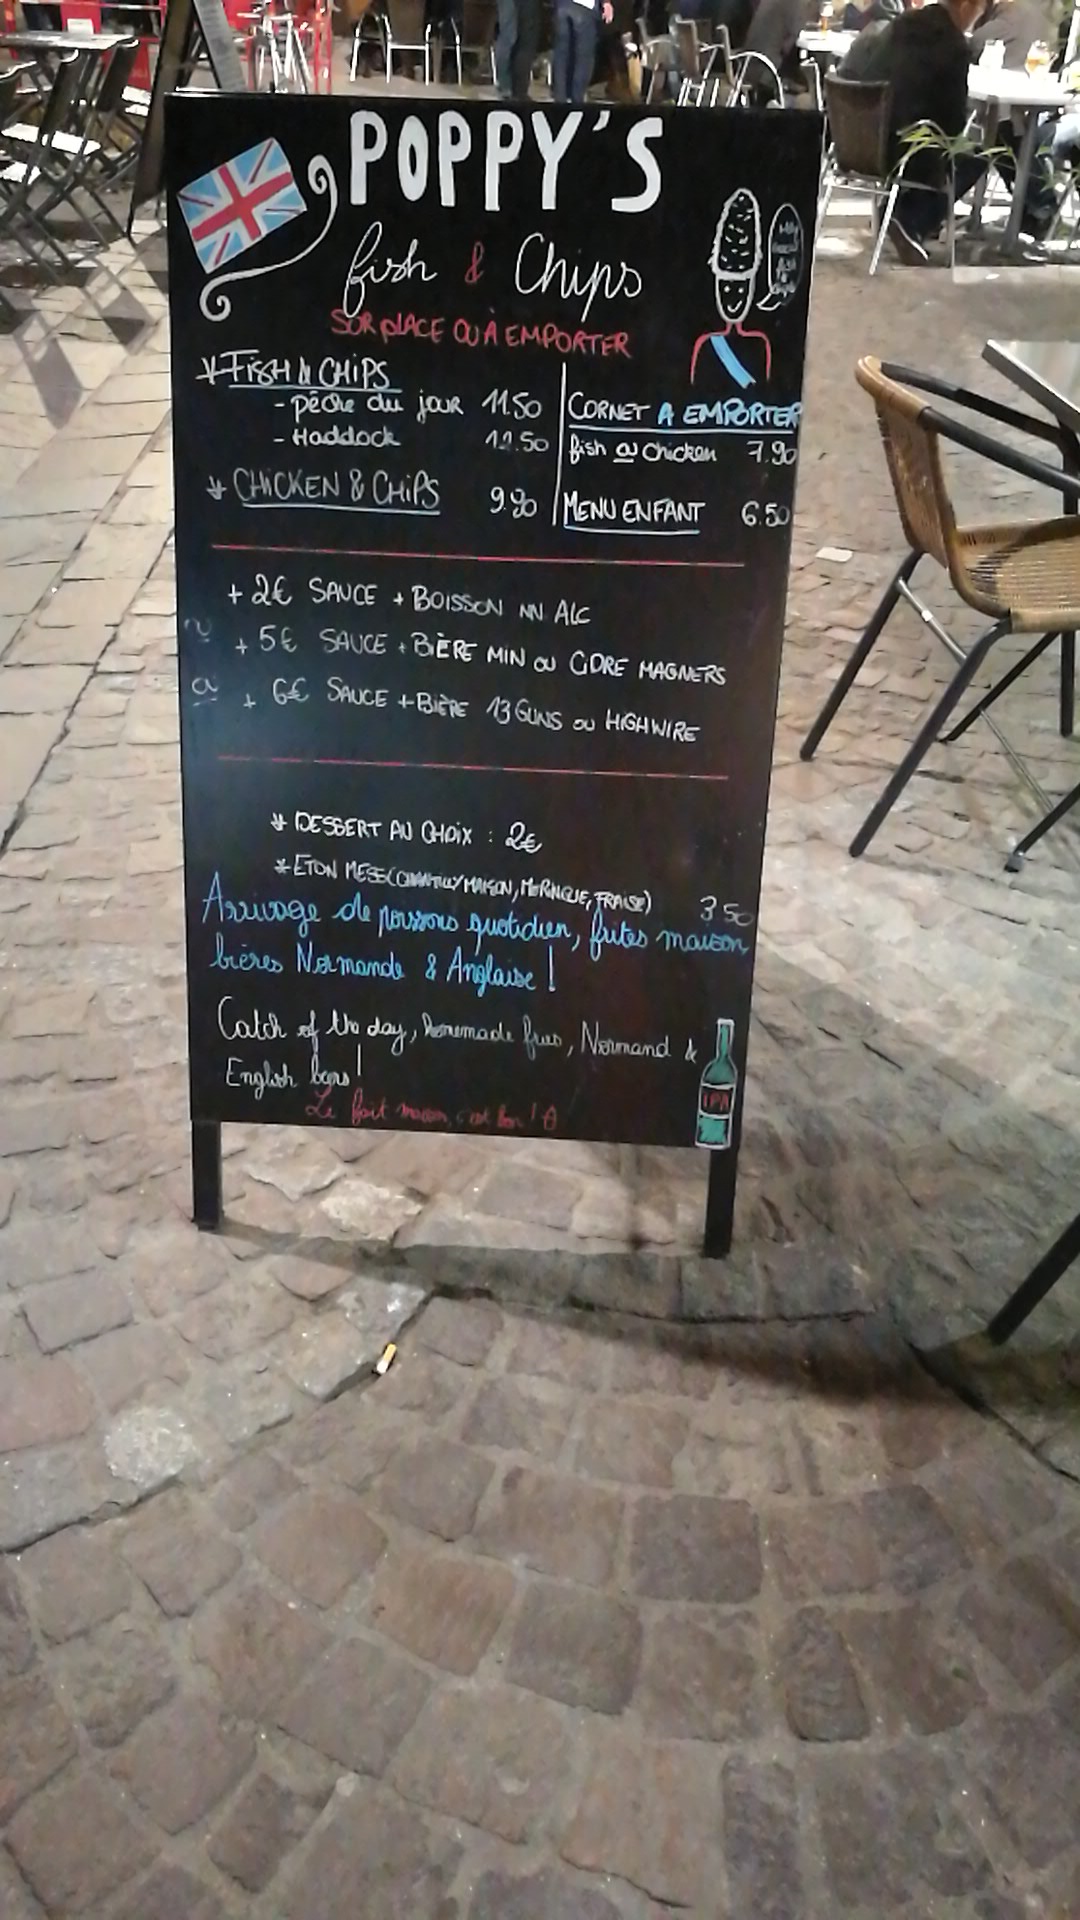 POPPY'S
fish & Chips
SUR PLACE OU À EMPORTER
* FISH & CHIPS
- pêche du jour 11.50
- Haddock 12.50
* CHICKEN & CHIPS 9.90
CORNET A EMPORTER
fish ou chicken 7.90
MENU ENFANT 6.50
+ 2€ SAUCE + BOISSON NN ALC
+ 5€ SAUCE + BIÈRE MIN OU CIDRE MAGNERS
ou + 6€ SAUCE + BIÈRE 13 GUNS OU HIGHWIRE
* DESSERT AU CHOIX : 2€
* ETON MESS (CHANTILLY MAISON, MERINGUE, FRAISE) 3.50
Arrivage de poissons quotidien, frites maison,
bières Normande & Anglaise !
Catch of the day, homemade fries, Normand &
English beers !
Le fait maison, c'est bon !
IPA